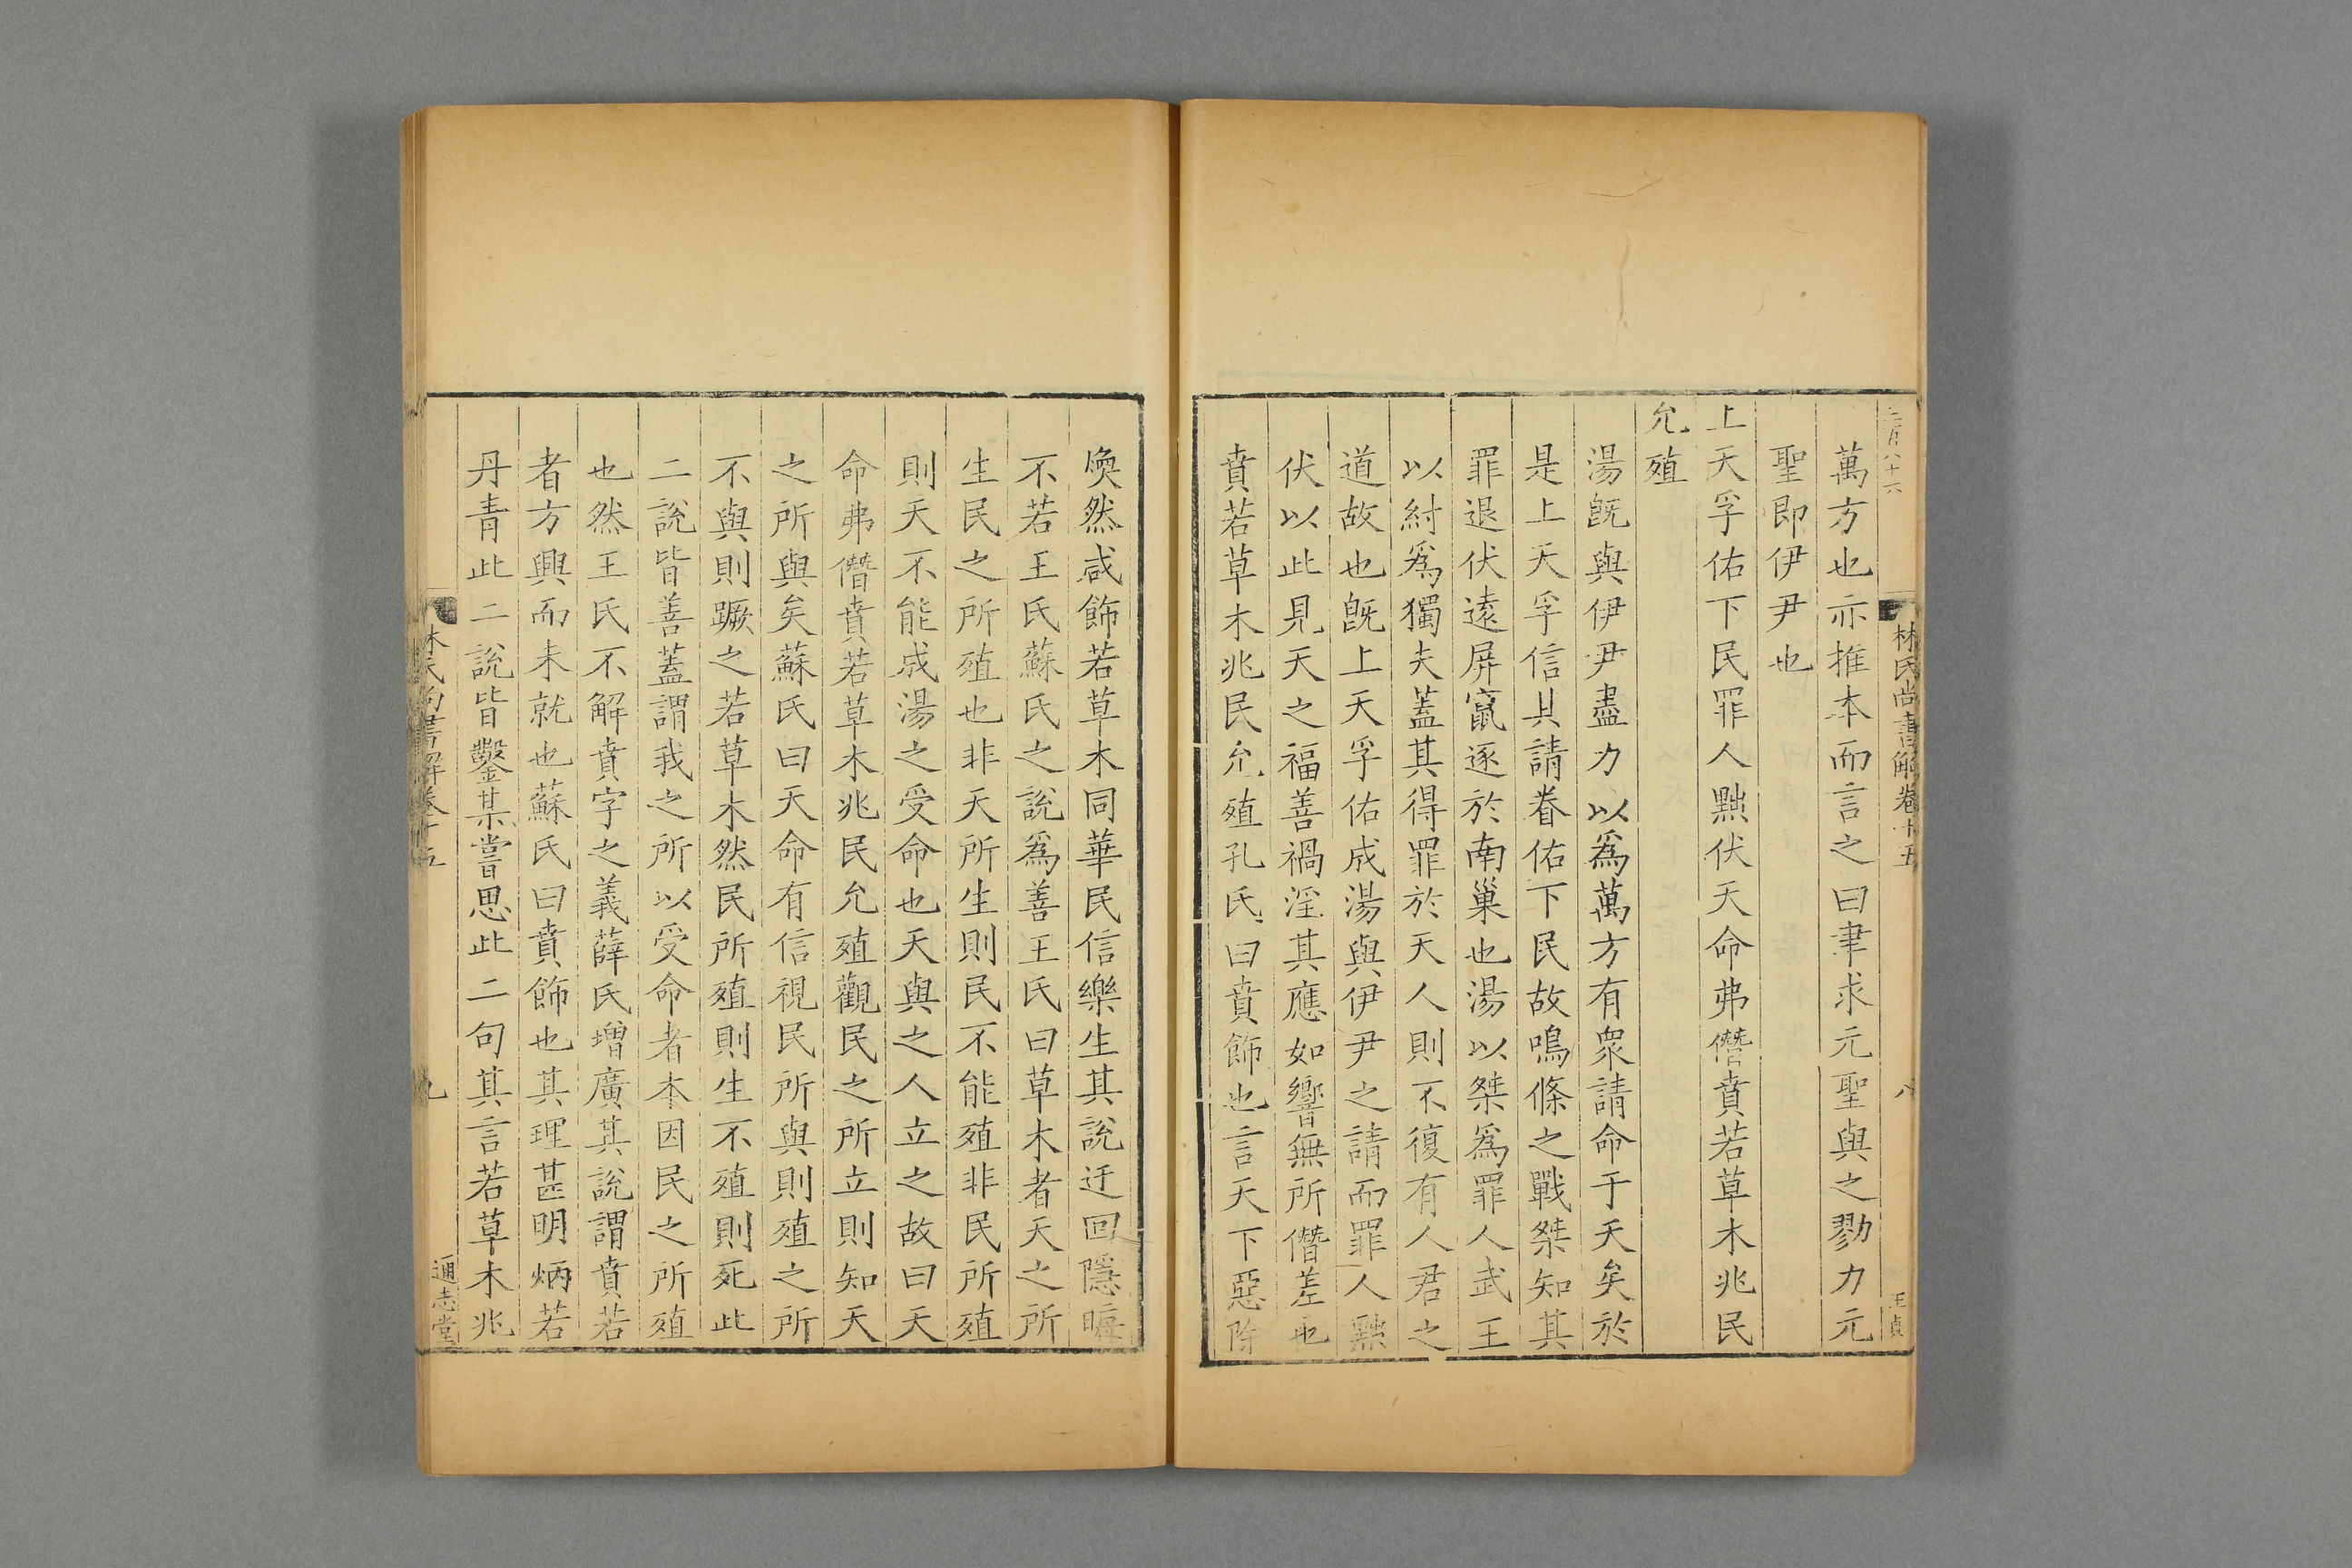 三百八十六
林氏尚書解卷十五
八
王貞
萬方也亦推本而言之曰聿求元聖與之勠力元
聖即伊尹也
上天孚佑下民罪人黜伏天命弗僭賁若草木兆民
允殖
湯旣與伊尹盡力以爲萬方有衆請命于天矣於
是上天孚信其請眷佑下民故鳴條之戰桀知其
罪退伏遠屏竄逐於南巢也湯以桀爲罪人武王
以紂爲獨夫蓋其得罪於天人則不復有人君之
道故也旣上天孚佑成湯與伊尹之請而罪人黜
伏以此見天之福善禍淫其應如響無所僭差也
賁若草木兆民允殖孔氏曰賁飾也言天下惡除
煥然咸飾若草木同華民信樂生其說迂回隱晦
不若王氏蘇氏之說爲善王氏曰草木者天之所
生民之所殖也非天所生則民不能殖非民所殖
則天不能成湯之受命也天與之人立之故曰天
命弗僭賁若草木兆民允殖觀民之所立則知天
之所與矣蘇氏曰天命有信視民所與則殖之所
不與則蹶之若草木然民所殖則生不殖則死此
二說皆善蓋謂我之所以受命者本因民之所殖
也然王氏不解賁字之義薛氏增廣其說謂賁若
者方興而未就也蘇氏曰賁飾也其理甚明炳若
丹青此二說皆鑿某嘗思此二句其言若草木兆
林氏尚書解卷十五
九
通志堂